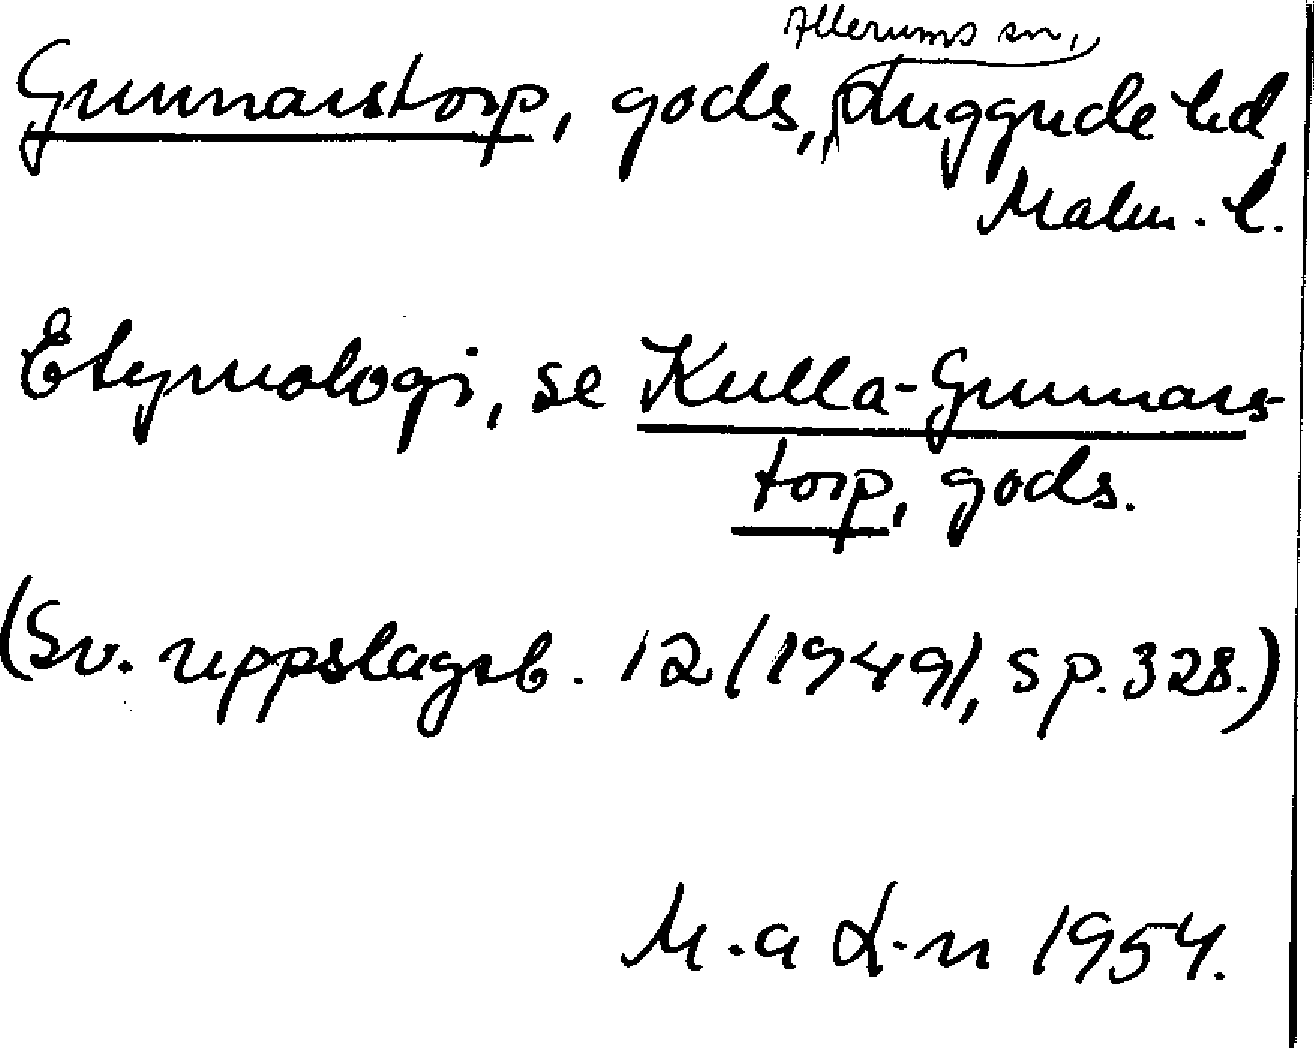 Allerums sn,
Gunnarstorp, gods, Luggude hd,
Malm. l.
Etymologi, se Kulla-Gunnars-
torp, gods.
(Sv. uppslagsb. 12 (1949), sp. 328.)
M.a L-n 1954.